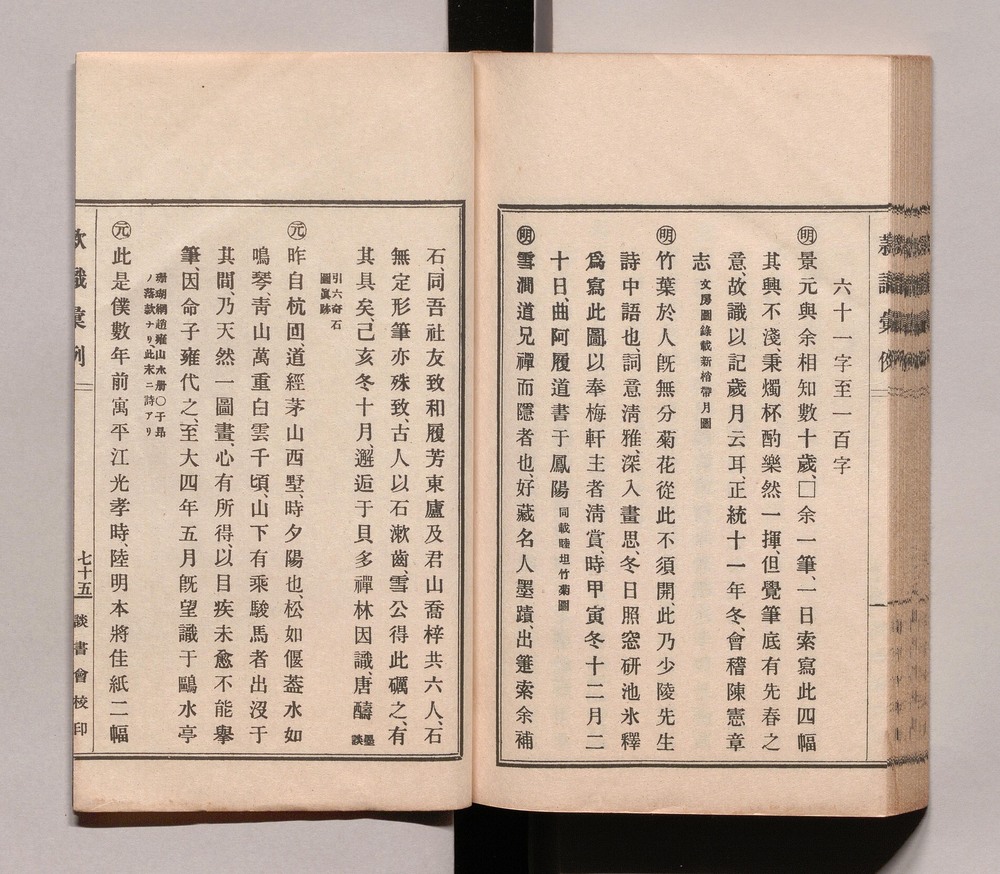 六十一字至一百字
㊔景元與余相知數十歲、□余一筆、一日索寫此四幅
其興不淺、秉燭杯酌樂然一揮、但覺筆底有先春之
意、故識以記歲月云耳、正統十一年冬、會稽陳憲章
志、文房圖錄載新橧帶月圖
明竹葉於人旣無分菊花從此不須開、此乃少陵先生
詩中語也、詞意淸雅、深入畫思、冬日照窓硏池氷釋
爲寫此圖、以奉梅軒主者淸賞、時甲寅冬十二月二
十日、曲阿履道書于鳳陽 同載陸坦竹菊圖
明雪澗道兄禪而隱者也、好藏名人墨蹟、出箑索余補
石、同吾社友致和履芳東廬及君山喬梓共六人、石
無定形筆亦殊致、古人以石漱齒、雪公得此礪之、有
其具矣、己亥冬十月、邂逅于貝多禪林因識唐醻 墨談
引六奇石
圖眞跡
元昨自杭回、道經茅山西墅、時夕陽也、松如偃葢水如
鳴琴、靑山萬重白雲千頃、山下有乘駿馬者出沒于
其間、乃天然一圖畫、心有所得、以目疾未愈不能擧
筆、因命子雍代之、至大四年五月旣望識于鷗水亭
珊瑚網趙雍山水册〇子昂
ノ落款ナリ、此末ニ詩アリ
元此是僕數年前寓平江光孝時、陸明本將佳紙二幅
款識彙例
七十五
談書會校印